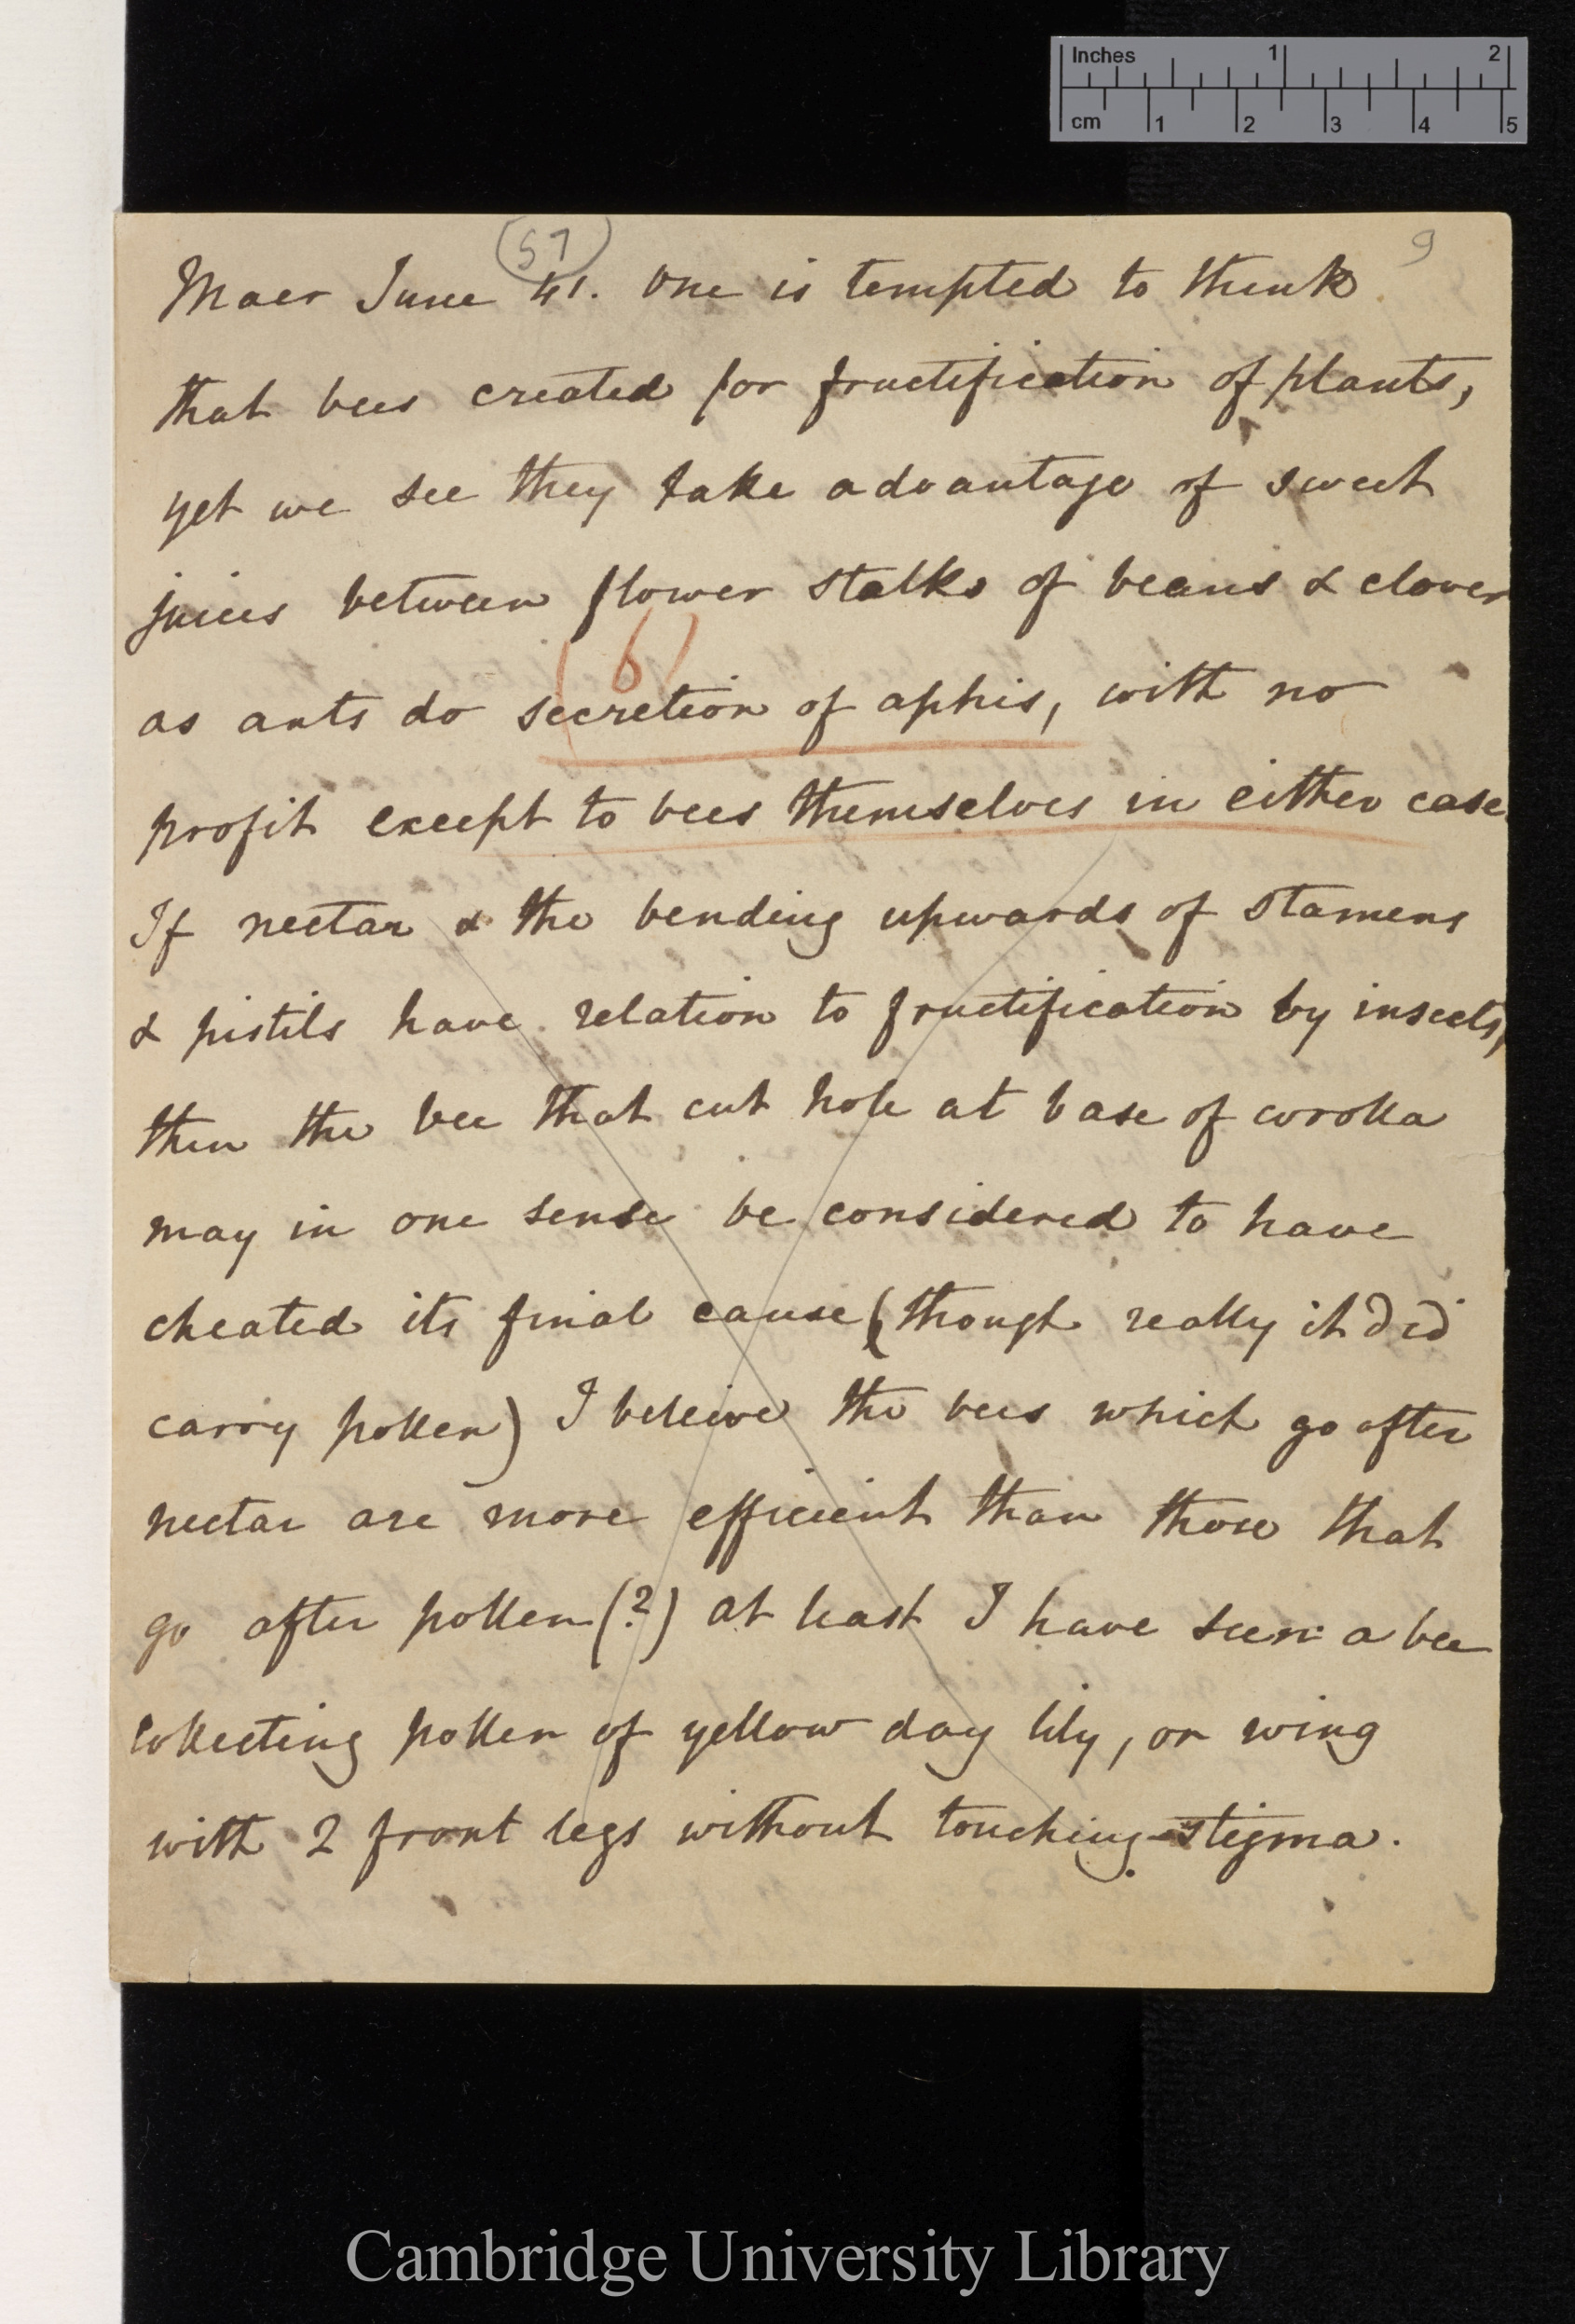 Inches 1 2
cm 1 2 3 4 5
(57) 9
Maer June 41. One is tempted to think
that bees created for fructification of plants,
yet we see they take advantage of sweet
juices between flower stalks of beans & clover
(6)
as ants do secretion of aphis, with no
profit except to bees themselves in either case.
If nectar & the bending upwards of stamens
& pistils have relation to fructification by insects,
then the bee that cut hole at base of corolla
may in one sense be considered to have
cheated its final cause (though really it did
carry pollen) I believe the bees which go after
nectar are more efficient than those that
go after pollen (?) at least I have seen a bee
collecting pollen of yellow day lily, on wing
with 2 front legs without touching stigma.
Cambridge University Library